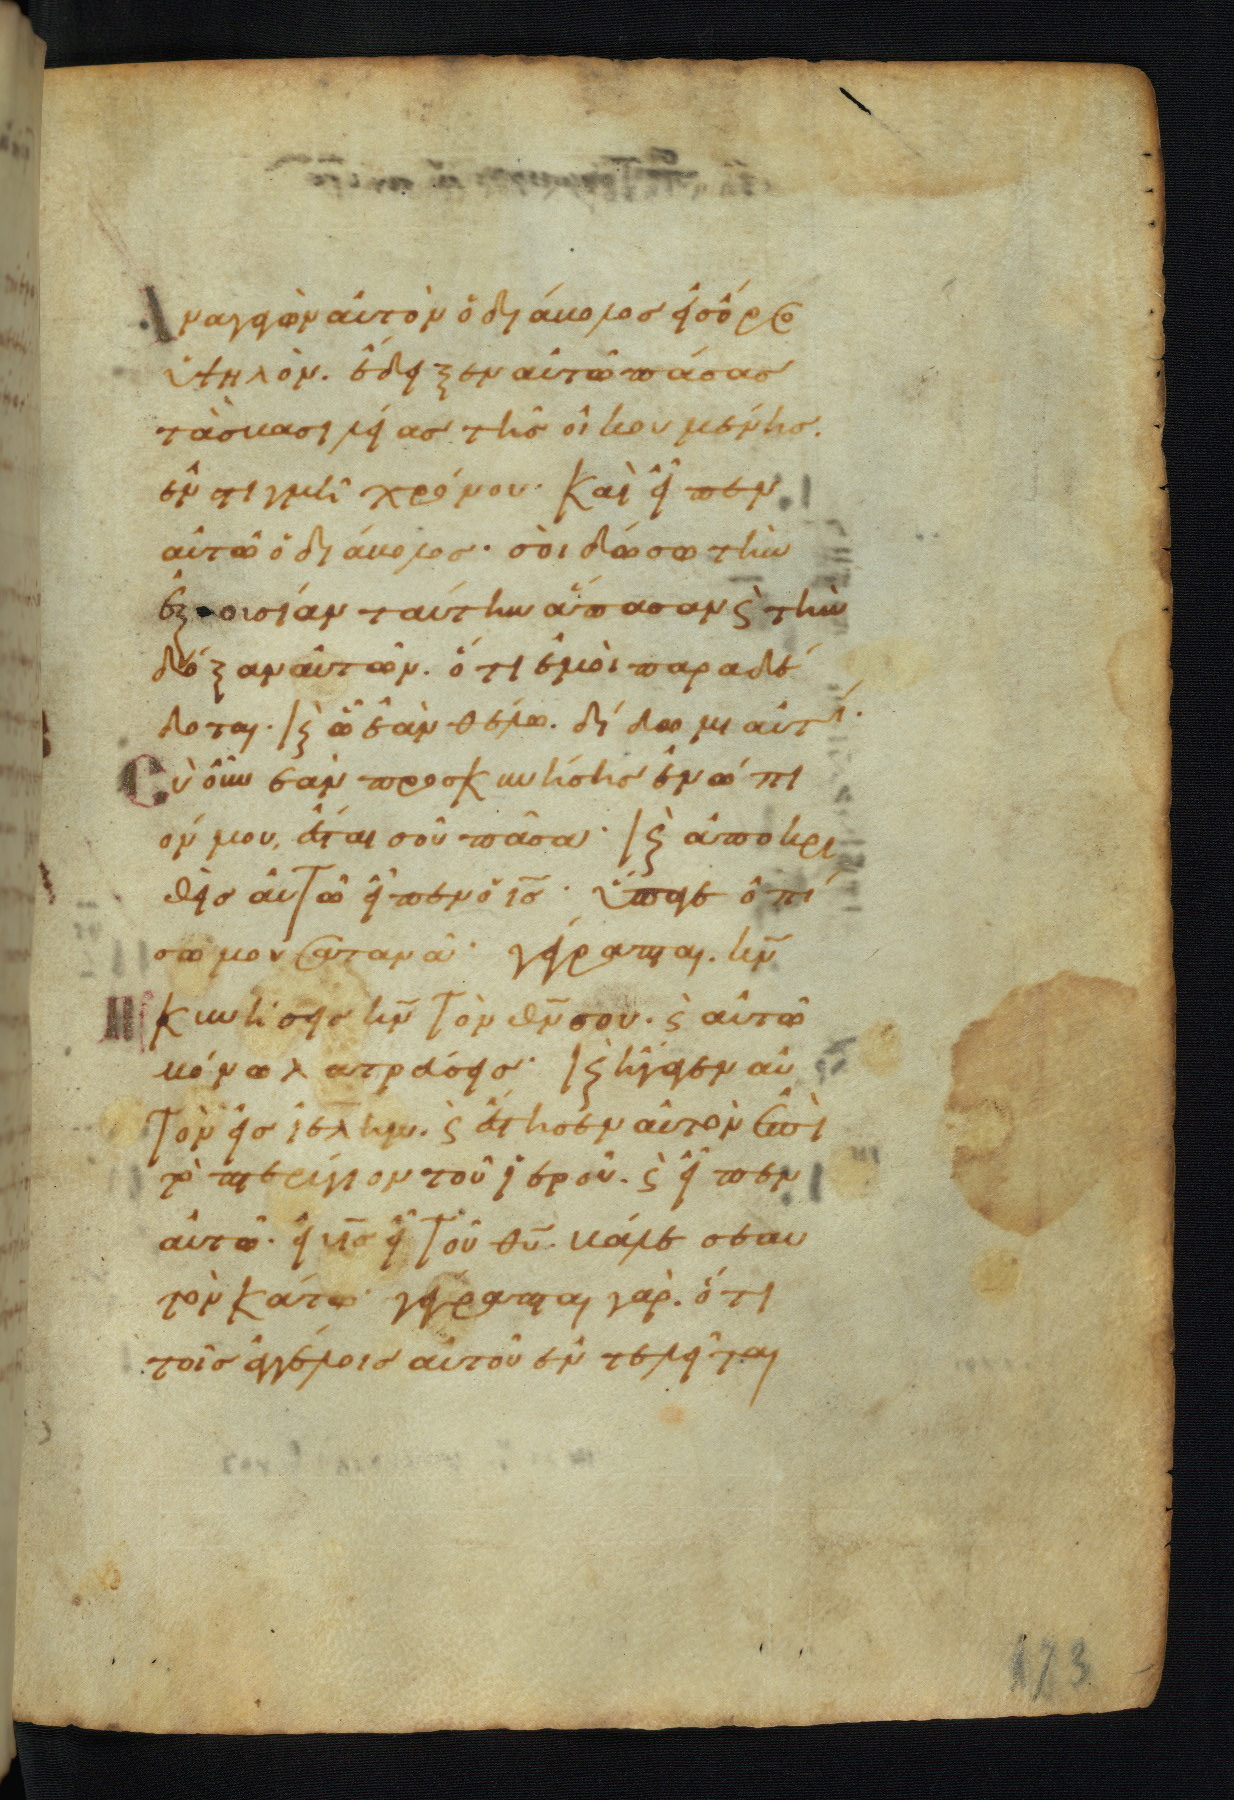 Αναγαγὼν αὐτὸν ὁ διάβολος εἰς ὄρος
ὑψηλὸν. ἔδειξεν αὐτῶ πάσας
τὰς βασιλείας τῆς οἰκουμένης.
ἐν στιγμῆ χρόνου. Καὶ εἶπεν
αὐτῶ ὁ διάβολος. σοὶ δώσω τὴν
ἐξουσίαν ταύτην ἅπασαν ϛ τὴν
δόξαν αὐτῶν. ὅτι ἐμοὶ παραδέ
δοται. ϗ ὧ ἐὰν θέλω. δίδωμι αὐτή.
Cὺ οὖν ἐὰν προσκυνήσης ἐνώπι
όν μου, ἔσται σοῦ πᾶσα. ϗ ἀποκρι
θεὶς αὐτῶ εἶπεν ὁ ις. ὕπαγε ὀπί
σω μου σατανᾶ. γέγραπται. κν
Πκυνήσεις κν τὸν θν σου. ϛ αὐτῶ
μόνω λατρεύσεις. ϗ ἤγαγεν αὐ
τὸν εἰς ιελημ. ϛ ἔστησεν αὐτὸν ἐπὶ
τὸ πτερύγιον τοῦ ἱεροῦ. ϛ εἶπεν
αὐτῶ. εἰ υις εἶ τοῦ θυ. βάλε σεαυ
τὸν κάτω. γέγραπται γάρ. ὅτι
τοῖς ἀγγέλοις αὐτοῦ ἐντελεῖται
173